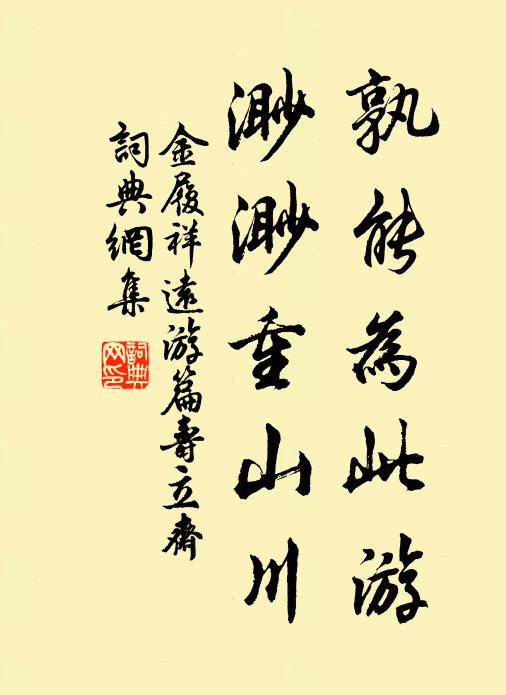 孰能為此游
渺渺重山川
金履祥遠游篇壽立齋
詞典網集
詞典網印